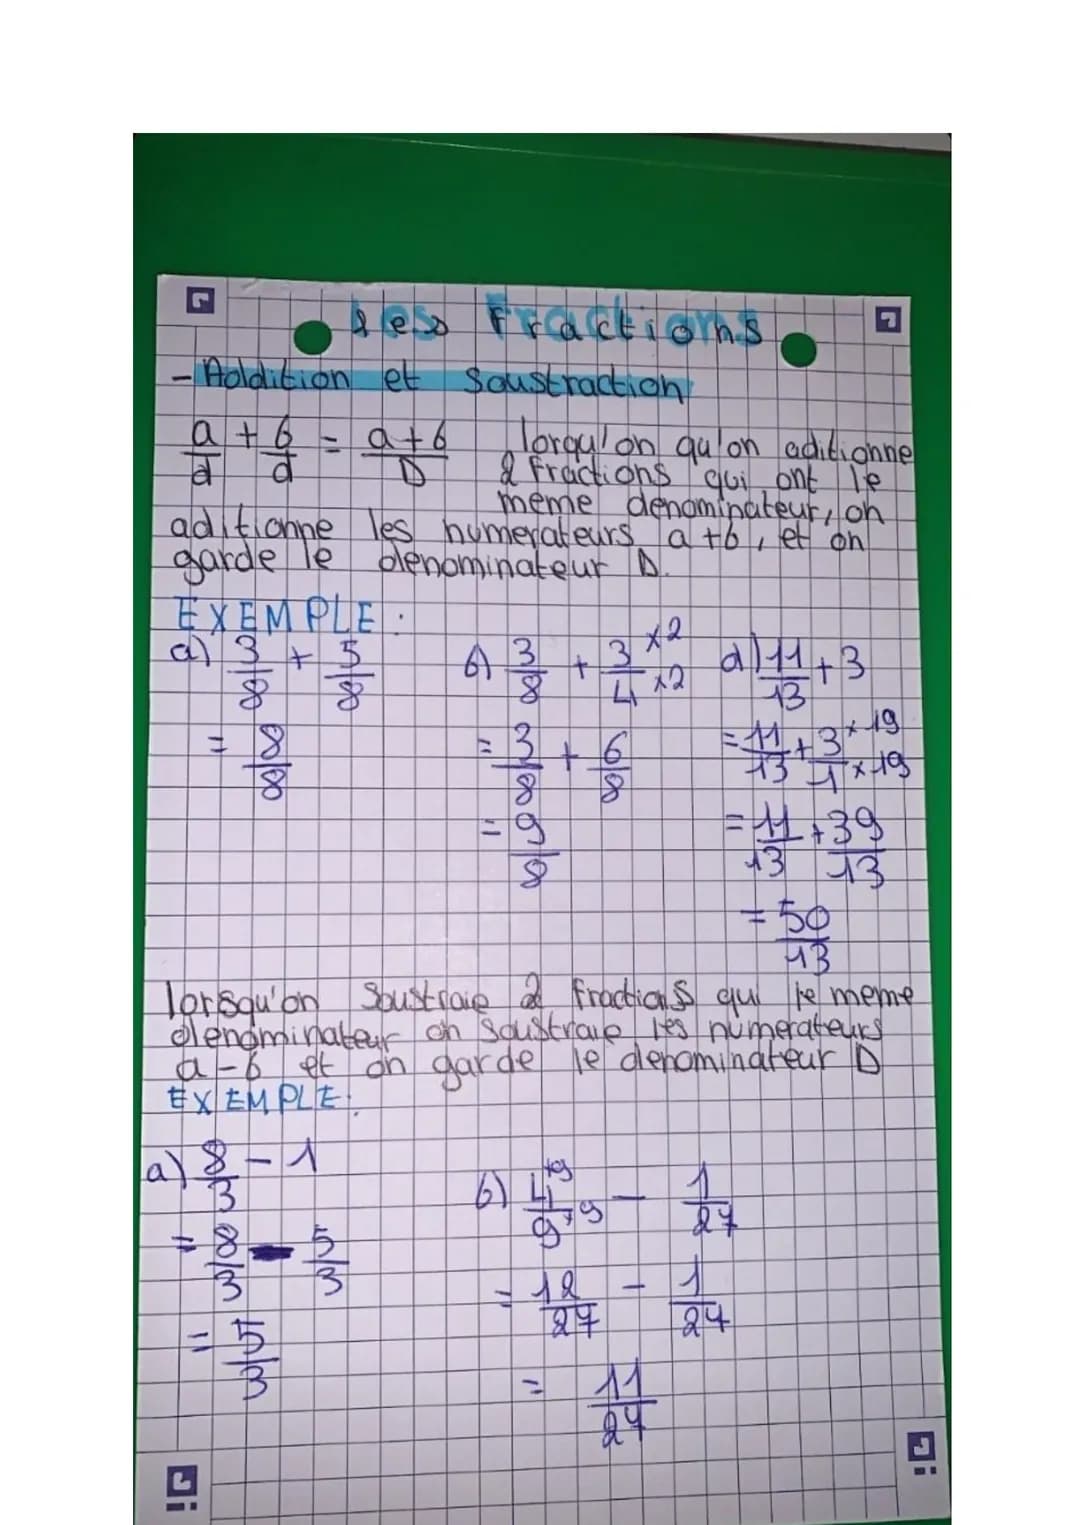 Les Fractions
- Addition et Soustraction
a/d + b/d = a+b/D lorqu'on qu'on aditionne
2 fractions qui ont le
meme denominateur, on
aditionne les numerateurs a+b, et on
garde le denominateur D.
EXEMPLE :
a) 3/8 + 5/8
= 8/8
b) 3/8 + 3/4 x2 x2
= 3/8 + 6/8
= 9/8
d) 11/13 + 3
= 11/13 + 3/1 x19 x19
= 11/13 + 39/13
= 50/13
lorsqu'on soustraie 2 fractions qui le meme
denominateur on soustraie les numerateurs
a-b et on garde le denominateur D
EXEMPLE:
a) 8/3 - 1
= 8/3 - 5/3
= 5/3
b) 4/9 - 1/27
= 12/27 - 1/27
= 11/27